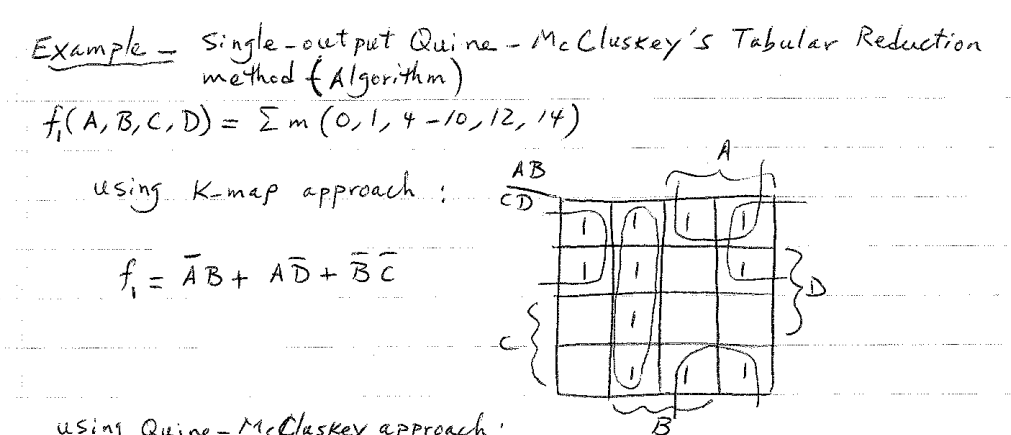 Example – Single-output Quine-McCluskey's Tabular Reduction
method (Algorithm)
f₁(A, B, C, D) = Σ m (0, 1, 4-10, 12, 14)
using K-map approach :
f₁ = A̅B + AD̅ + B̅ C̅
A
AB
CD
1 1 1 1
1 1 1
1
1 1 1
D
C
B
using Quine-McCluskey approach :